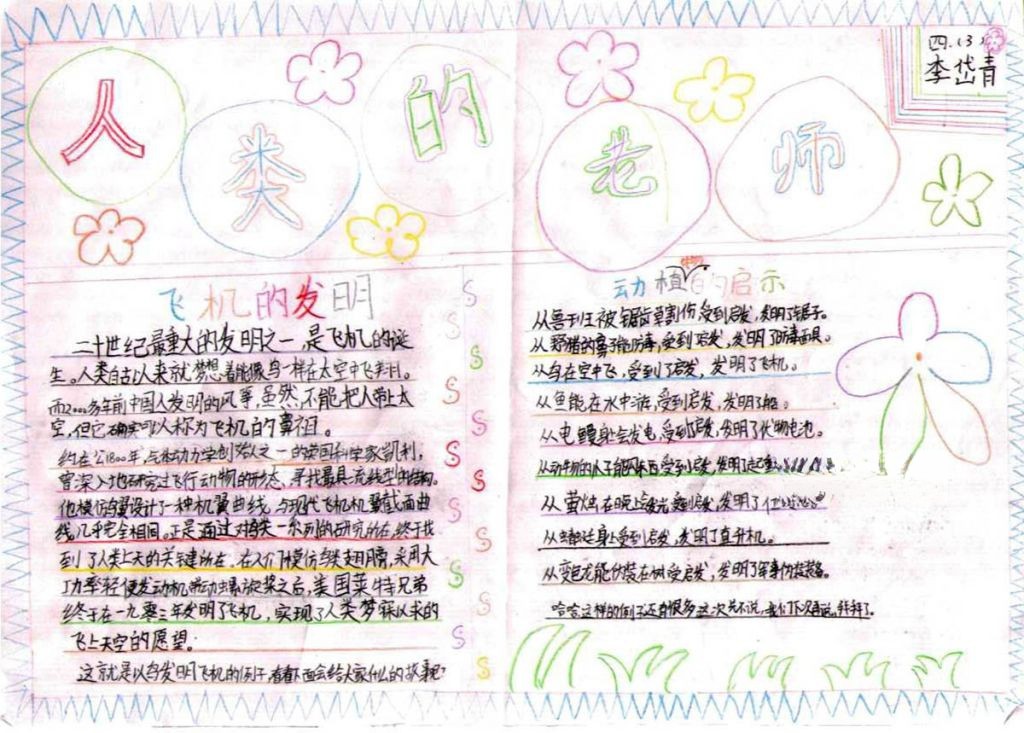 人类的老师
四.(3)
李岱青
飞机的发明
二十世纪最重大的发明之一,是飞机的诞
生。人类自古以来就梦想着能像鸟一样在太空中飞
而2000多年前中国人发明的风筝,虽然不能把人带上太
空,但它确实可以称为飞机的鼻祖。
约在公1800年,气体动力学创始人之一的英国科学家凯利,
曾深入地研究过飞行动物的形态,寻找最具流线型的结构。
他模仿 设计了一种机翼曲线,与现代飞机机翼截面曲
线几乎完全相同。正是通过对 的研究 终于找
到了人类上天的关键所在。在人们模仿 翅膀,采用大
功率轻便发动机带动螺旋桨之后,美国莱特兄弟
终于在一九零三年发明了飞机,实现了人类梦寐以求的
飞上天空的愿望。
这就是以鸟发明飞机的例子,看看下面会给大家什么的故事呢?
动植物的启示
从鲁子生被锯齿草割伤受到启发,发明了锯子。
从野猪的鼻子能防毒,受到了启发,发明了防毒面具。
从鸟在空中飞,受到了启发,发明了飞机。
从鱼能在水中游,受到启发,发明了船。
从电鳗身会发电,受到启发,发明了伏特电池。
受到启发,发明了起重
从萤火虫在晚上发光受到启发,发明了
从蜻蜓身上受到启发,发明了直升机。
从变色龙能伪装在树受启发,发明了军事伪装
哈哈这样的例子还有很多这次先不说,我们下次再说,拜拜了。